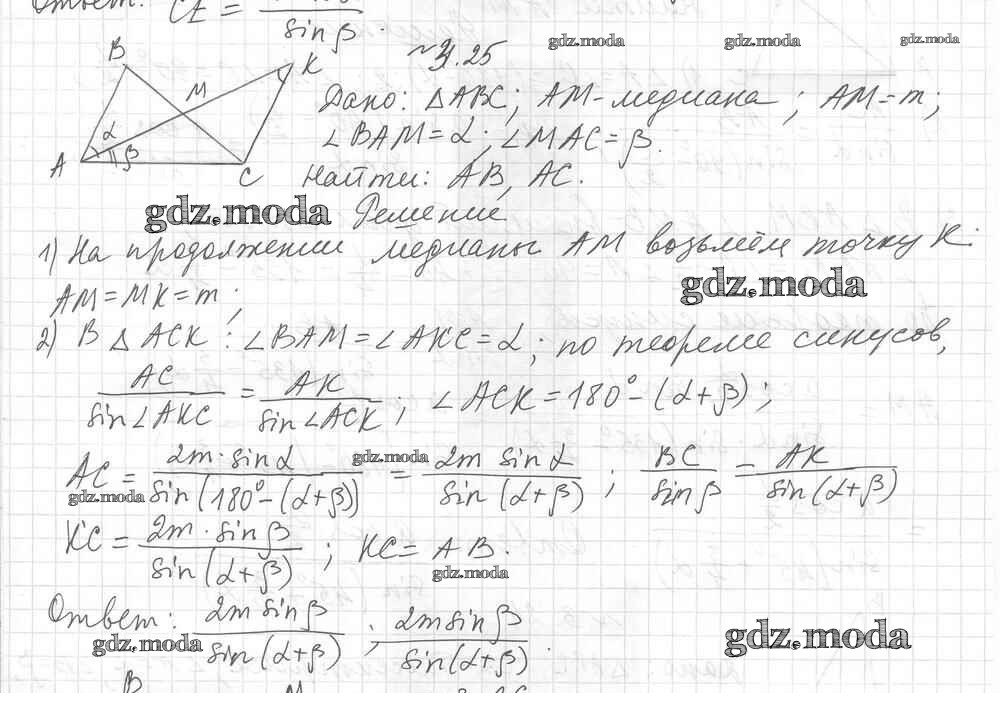 Ответ: CE =
sin β .
gdz.moda gdz.moda gdz.moda
B M K A C α β
№ 3.25
Дано: △ABC; AM - медиана; AM = m;
∠BAM = α; ∠MAC = β.
Найти: AB, AC.
gdz.moda Решение
1) На продолжении медианы AM возьмём точку K:
gdz.moda
AM = MK = m;
2) В △ ACK: ∠BAM = ∠AKC = α; по теореме синусов,
AC / sin∠AKC = AK / sin∠ACK ; ∠ACK = 180° - (α+β);
AC = 2m · sin α / sin(180° - (α+β)) = 2m sin α / sin(α+β) ; BC / sin β = AK / sin(α+β)
gdz.moda gdz.moda
KC = 2m · sin β / sin(α+β) ; KC = AB.
gdz.moda
Ответ: 2m sin β / sin(α+β) ; 2m sin β / sin(α+β) .
gdz.moda gdz.moda
B M